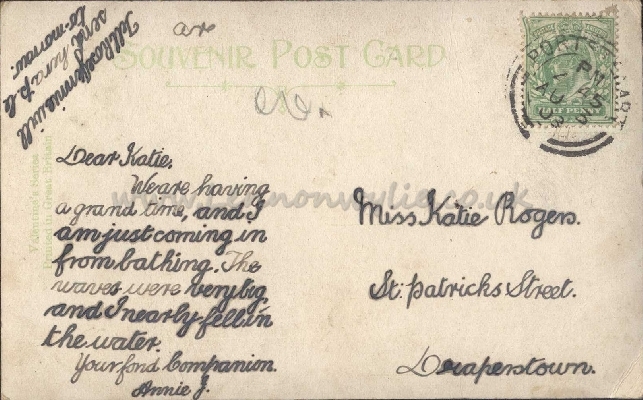 Tell Rosy Jennie will
send her a p.c
to-morrow.
SOUVENIR POST CARD
Dear Katie,
We are having
a grand time, and I
am just coming in
from bathing. The
waves were very big,
and I nearly fell in
the water.
Your fond Companion.
Annie J.
Miss Katie Rogers.
St. Patricks Street.
Draperstown.
Valentine's Series
Printed in Great Britain
HALF PENNY
www.lennonwylie.co.uk